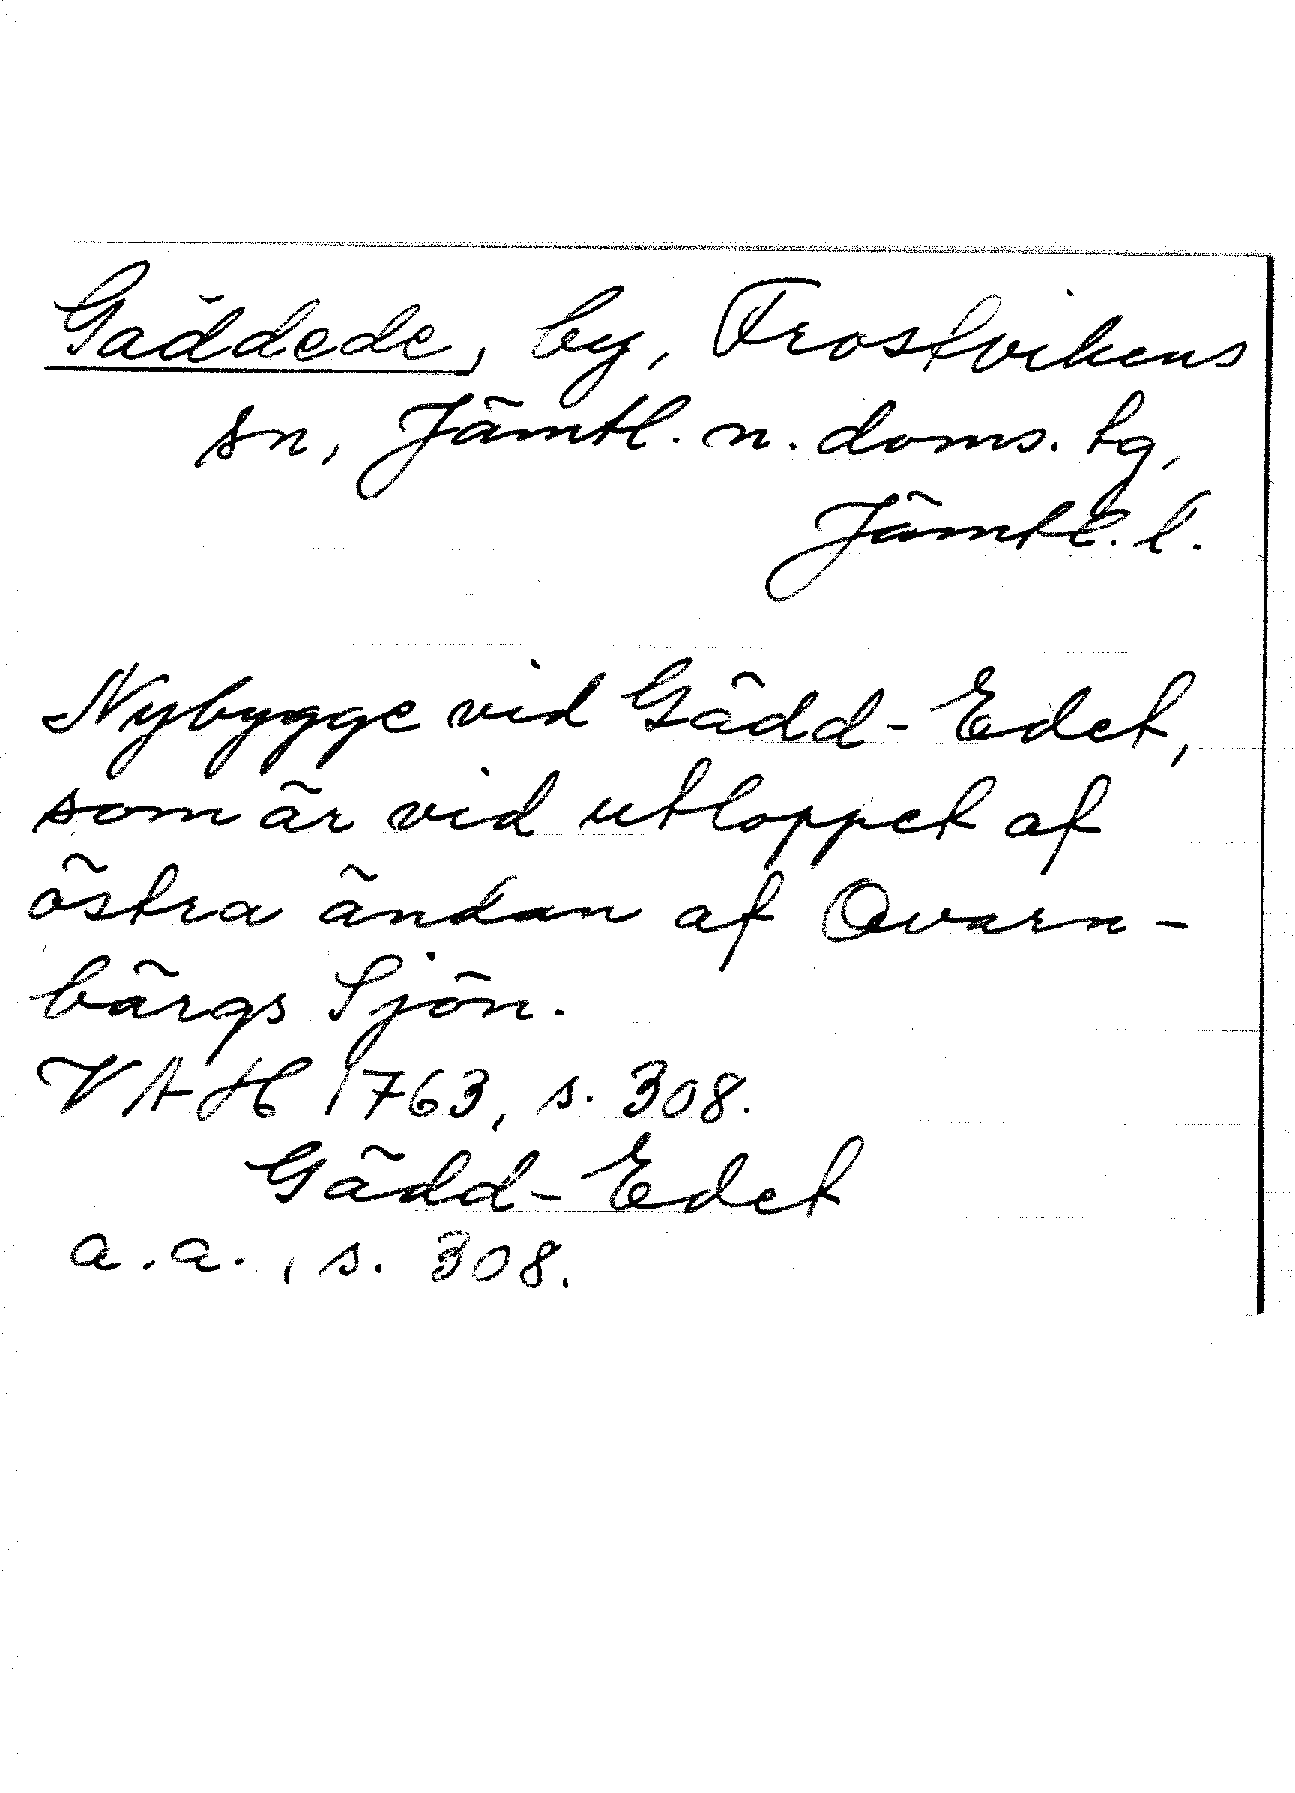 Gäddede, by, Frostvikens
sn, Jämtl. n. doms. tg,
Jämtl. l.
Nybygge vid Gädd-Edet,
som är vid utloppet af
östra ändan af Qvarn-
bärgs Sjön.
VAH 1763, s. 308.
Gädd-Edet
a.a., s. 308.